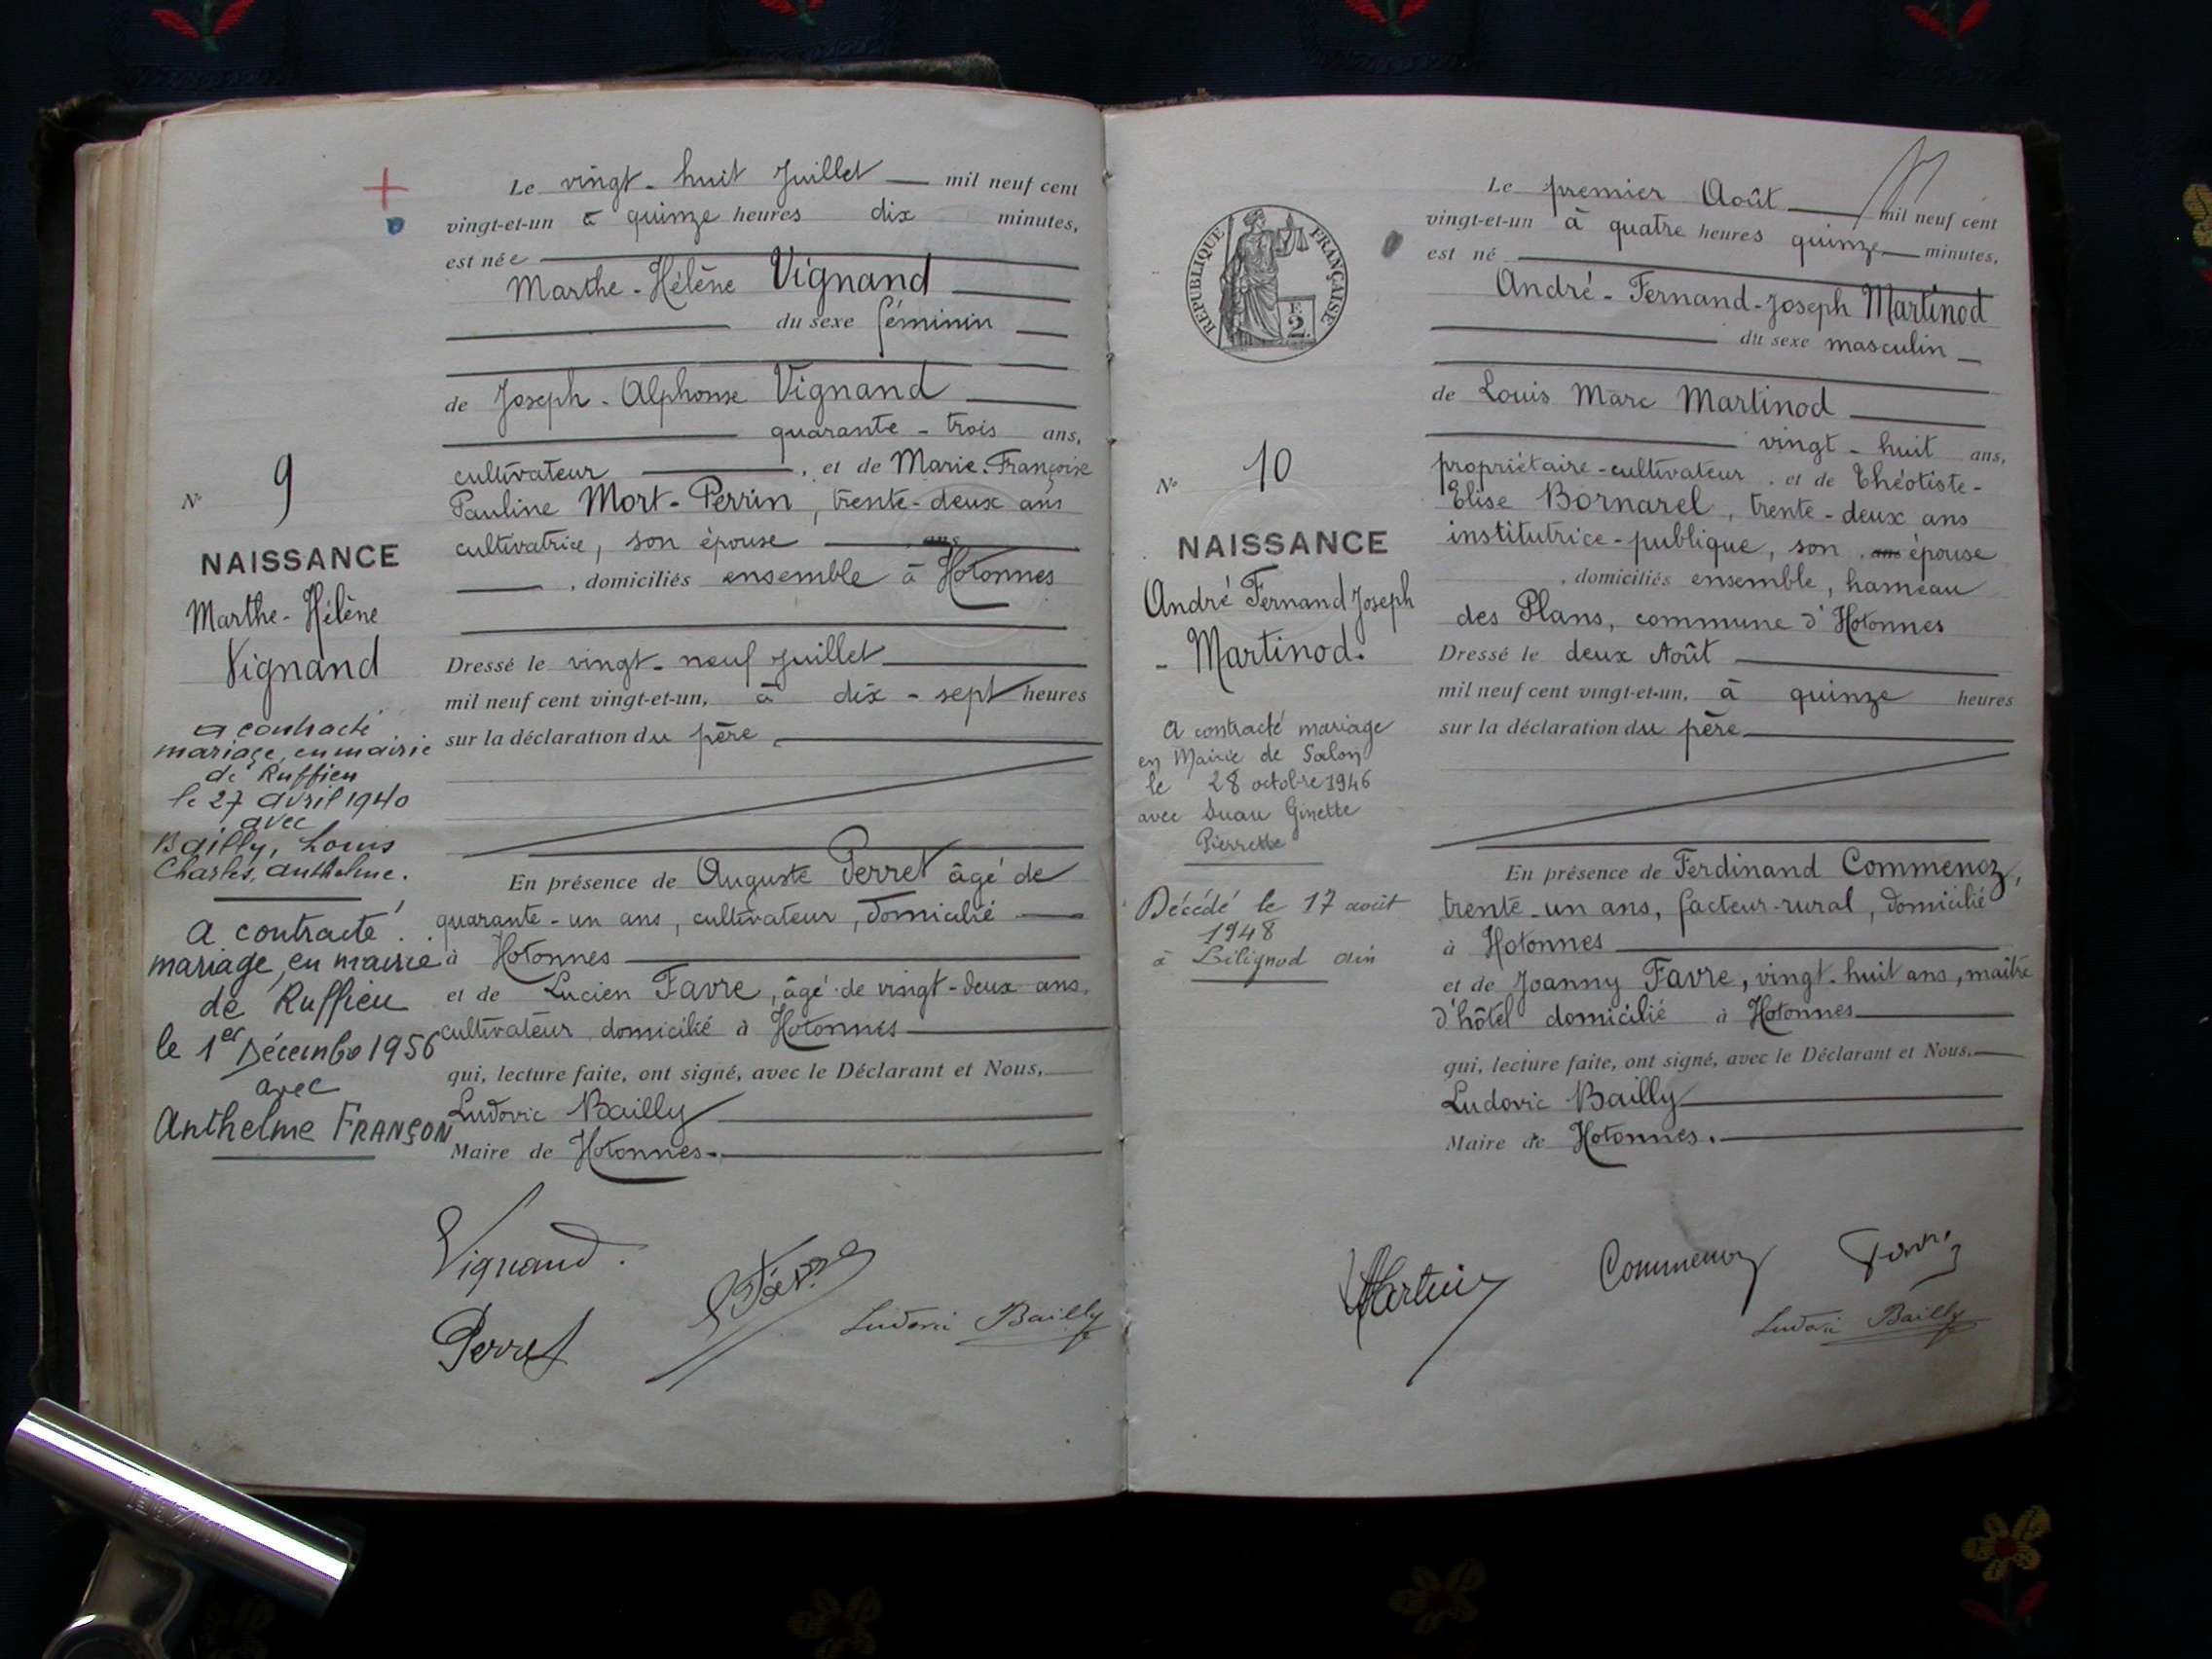 Le vingt-huit Juillet mil neuf cent
vingt-et-un à quinze heures dix minutes,
est née
Marthe-Hélène Vignand
du sexe féminin
de Joseph-Alphonse Vignand
quarante-trois ans,
cultivateur, et de Marie-Françoise
Pauline Mort-Perrin, trente-deux ans
cultivatrice, son épouse ans
, domiciliés ensemble à Hotonnes
Dressé le vingt-neuf Juillet
mil neuf cent vingt-et-un, à dix-sept heures
sur la déclaration du père
En présence de Auguste Perret âgé de
quarante-un ans, cultivateur, domicilié
à Hotonnes
et de Lucien Favre, âgé de vingt-deux ans,
cultivateur domicilié à Hotonnes
qui, lecture faite, ont signé, avec le Déclarant et Nous,
Ludovic Bailly
Maire de Hotonnes.
Vignand.
Perret
Ludovic Bailly
N° 9
NAISSANCE
Marthe-Hélène
Vignand
a contracté
mariage, en mairie
de Ruffieu
le 27 avril 1940
avec
Bailly, Louis
Charles, Anthelme.
A contracté
mariage, en mairie
de Ruffieu
le 1er Décembre 1956
avec
Anthelme FRANÇON
REPUBLIQUE FRANÇAISE
F.
2
Le premier Août mil neuf cent
vingt-et-un à quatre heures quinze minutes,
est né
André-Fernand-Joseph Martinod
du sexe masculin
de Louis Marc Martinod
vingt-huit ans,
propriétaire-cultivateur, et de Théotiste-
Elise Bornarel, trente-deux ans
institutrice-publique, son ans épouse
, domiciliés ensemble, hameau
des Plans, commune d'Hotonnes
Dressé le deux Août
mil neuf cent vingt-et-un, à quinze heures
sur la déclaration du père
En présence de Ferdinand Commenoz,
trente-un ans, facteur-rural, domicilié
à Hotonnes
et de Joanny Favre, vingt-huit ans, maître
d'hôtel domicilié à Hotonnes
qui, lecture faite, ont signé, avec le Déclarant et Nous,
Ludovic Bailly
Maire de Hotonnes.
Commenoz
Ludovic Bailly
N° 10
NAISSANCE
André Fernand Joseph
- Martinod.
A contracté mariage
en Mairie de Salon
le 28 octobre 1946
avec Suau Ginette
Pierrette
Décédé le 17 août
1948
à Bilignod Ain